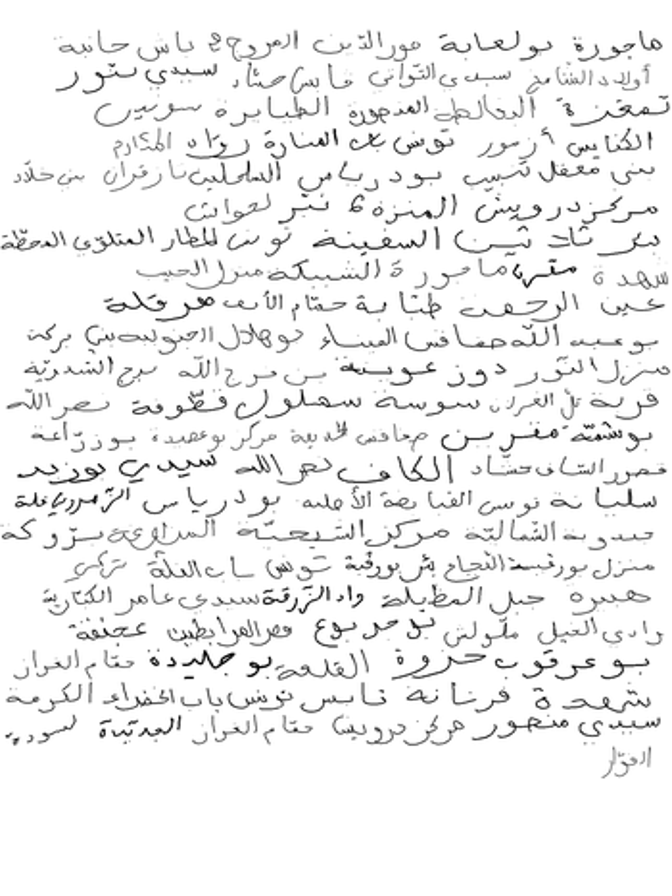 ماجورة بولعابة نور الدين المروج 2 باش حانبة
أولاد الشامخ سيدي التواتي قابس حشاد سيدي بنور
تمغزة الدقالطة المنصورة الطبابرة سونين
الكنايس أزمور تونس باب المنارة رواد المكارم
بني معقل تسيب بودرياس الساحلين تازقران بني خلاد
مركز درويش المنزه 6 نبر لعوابت
بئر ثلاثين السفينة تونس المطار المتلوي المحطة
شهدة مقرن ماجورة الشبيكة منزل الحبيب
عين الرحمة طبابة حمام الأنف هرقلة
بوعبد الله صفاقس الميناء بوهلال الجنوبية بني بركة
منزل النور دوز عوينة بن فرج الله برج الشدرية
قرية تل الغزلان سوسة سهلول قطوفة نصر الله
بوشمة مغرين صفاقس الحديبة مركز بوعصيدة بوزراعة
قصور الساف حشاد الكاف نصر الله سيدي بوزيد
سليانة تونس القباضة الأصلية بودرياس الزهور رياض قلة
جندوبة الشمالية مركز الشيحية المزاوي بزوكة
منزل بورقيبة النجاح بئر بورقبة تونس باب العلة تركي
هبيرة جبل المظيلة واد الزرقة سيدي عامر الكبارية
وادي الليل ملولش بوجربوع قصر المرابطين عجنقة
بوعرقوب حزوة القلعة بوجليدة مقام الغزاز
شهدة فرنانة قابس تونس باب الخضراء الكرمة
سيدي منصور مركز درويش حمام الغزاز الجديدة لسودة
الفوار